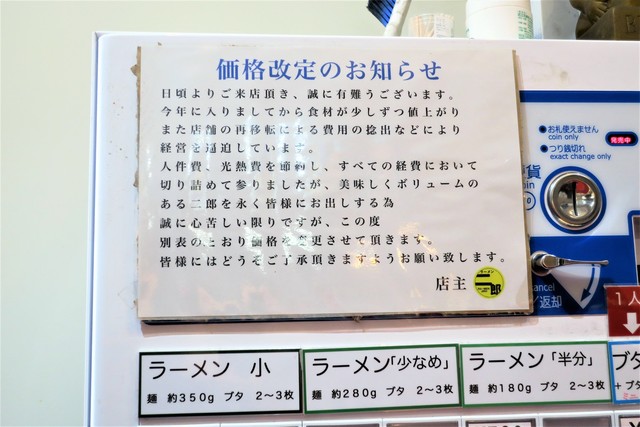 価格改定のお知らせ
日頃よりご来店頂き、誠に有難うございます。
今年に入りましてから食材が少しずつ値上がり
また店舗の再移転による費用の捻出などにより
経営を逼迫しています。
人件費、光熱費を節約し、すべての経費において
切り詰めて参りましたが、美味しくボリュームの
ある二郎を永く皆様にお出しする為
誠に心苦しい限りですが、この度
別表のとおり価格を変更させて頂きます。
皆様にはどうぞご了承頂きますようお願い致します。
店主
ラーメン
二郎
お札使えません
coin only
つり銭切れ
exact change only
発売中
貨
oin
ancel
/返却
1人
ラーメン 小
麺 約350g ブタ 2〜3枚
ラーメン「少なめ」
麺 約280g ブタ 2〜3枚
ラーメン「半分」
麺 約180g ブタ 2〜3枚
ブタ
+ブタ